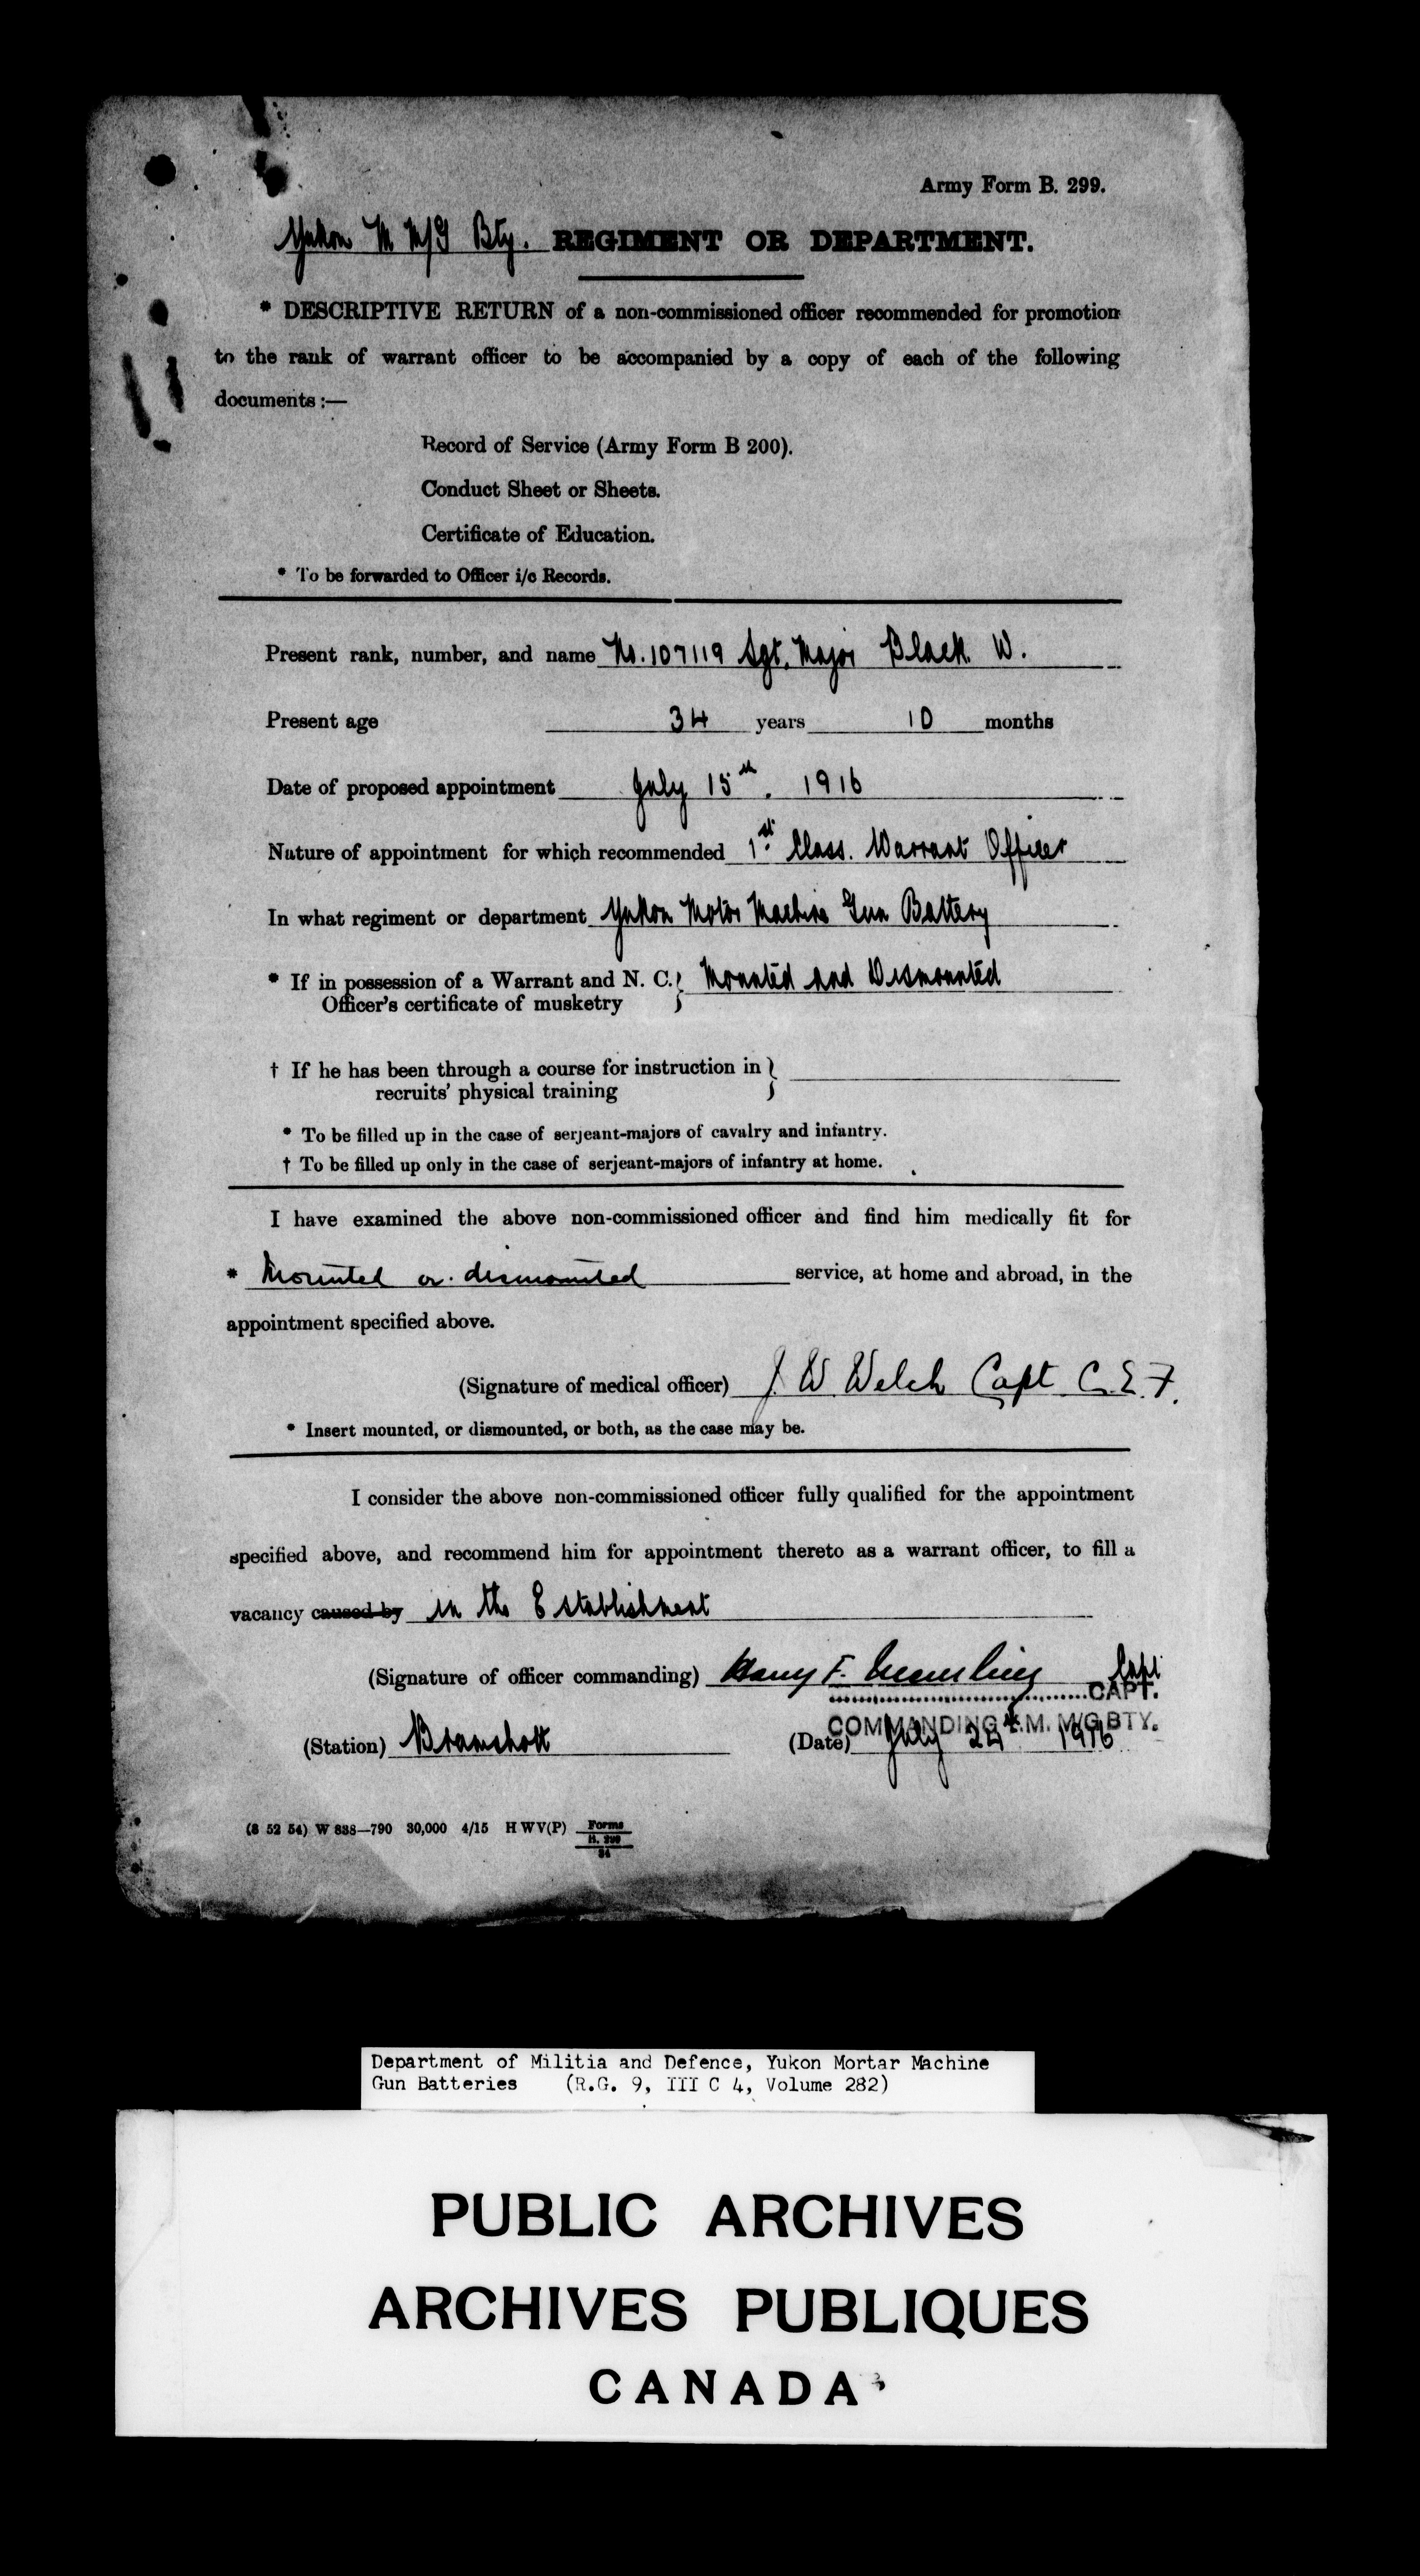 Army Form B. 299.
Yukon M M/G Bty. REGIMENT OR DEPARTMENT.
* DESCRIPTIVE RETURN of a non-commissioned officer recommended for promotion
to the rank of warrant officer to be accompanied by a copy of each of the following
documents :—
Record of Service (Army Form B 200).
Conduct Sheet or Sheets.
Certificate of Education.
* To be forwarded to Officer i/c Records.
Present rank, number, and name No. 107119 Sgt. Major Black W.
Present age 34 years 10 months
Date of proposed appointment July 15th. 1916
Nature of appointment for which recommended 1st Class. Warrant Officer
In what regiment or department Yukon Motor Machine Gun Battery
* If in possession of a Warrant and N. C. Mounted and Dismounted
Officer's certificate of musketry
† If he has been through a course for instruction in
recruits' physical training
* To be filled up in the case of serjeant-majors of cavalry and infantry.
† To be filled up only in the case of serjeant-majors of infantry at home.
I have examined the above non-commissioned officer and find him medically fit for
* Mounted or dismounted service, at home and abroad, in the
appointment specified above.
(Signature of medical officer) J. W. Welch Capt C.E.F.
* Insert mounted, or dismounted, or both, as the case may be.
I consider the above non-commissioned officer fully qualified for the appointment
specified above, and recommend him for appointment thereto as a warrant officer, to fill a
vacancy caused by in the Establishment
(Signature of officer commanding) Harry F. Capt
CAPT.
COMMANDING Y.M. M/G BTY.
(Station) Bramshott (Date) July 24 1916
(8 52 54) W 838—790 30,000 4/15 H W V(P) Forms
B. 299